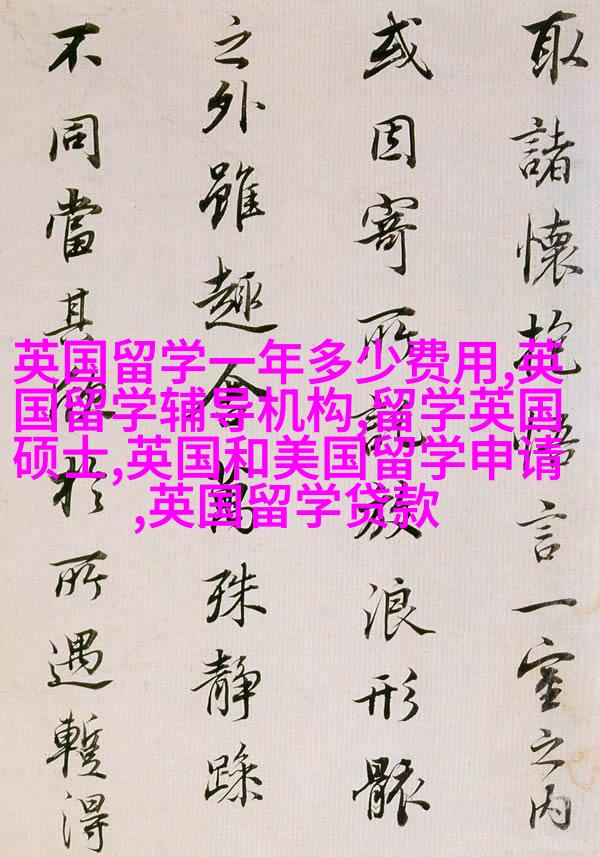 取諸懷抱悟言一室之内
或因寄所託放浪形骸
之外雖趣舍萬殊靜躁
不同當其欣於所遇暫得
英国留学一年多少费用,英
国留学辅导机构,留学英国
硕士,英国和美国留学申请
,英国留学贷款